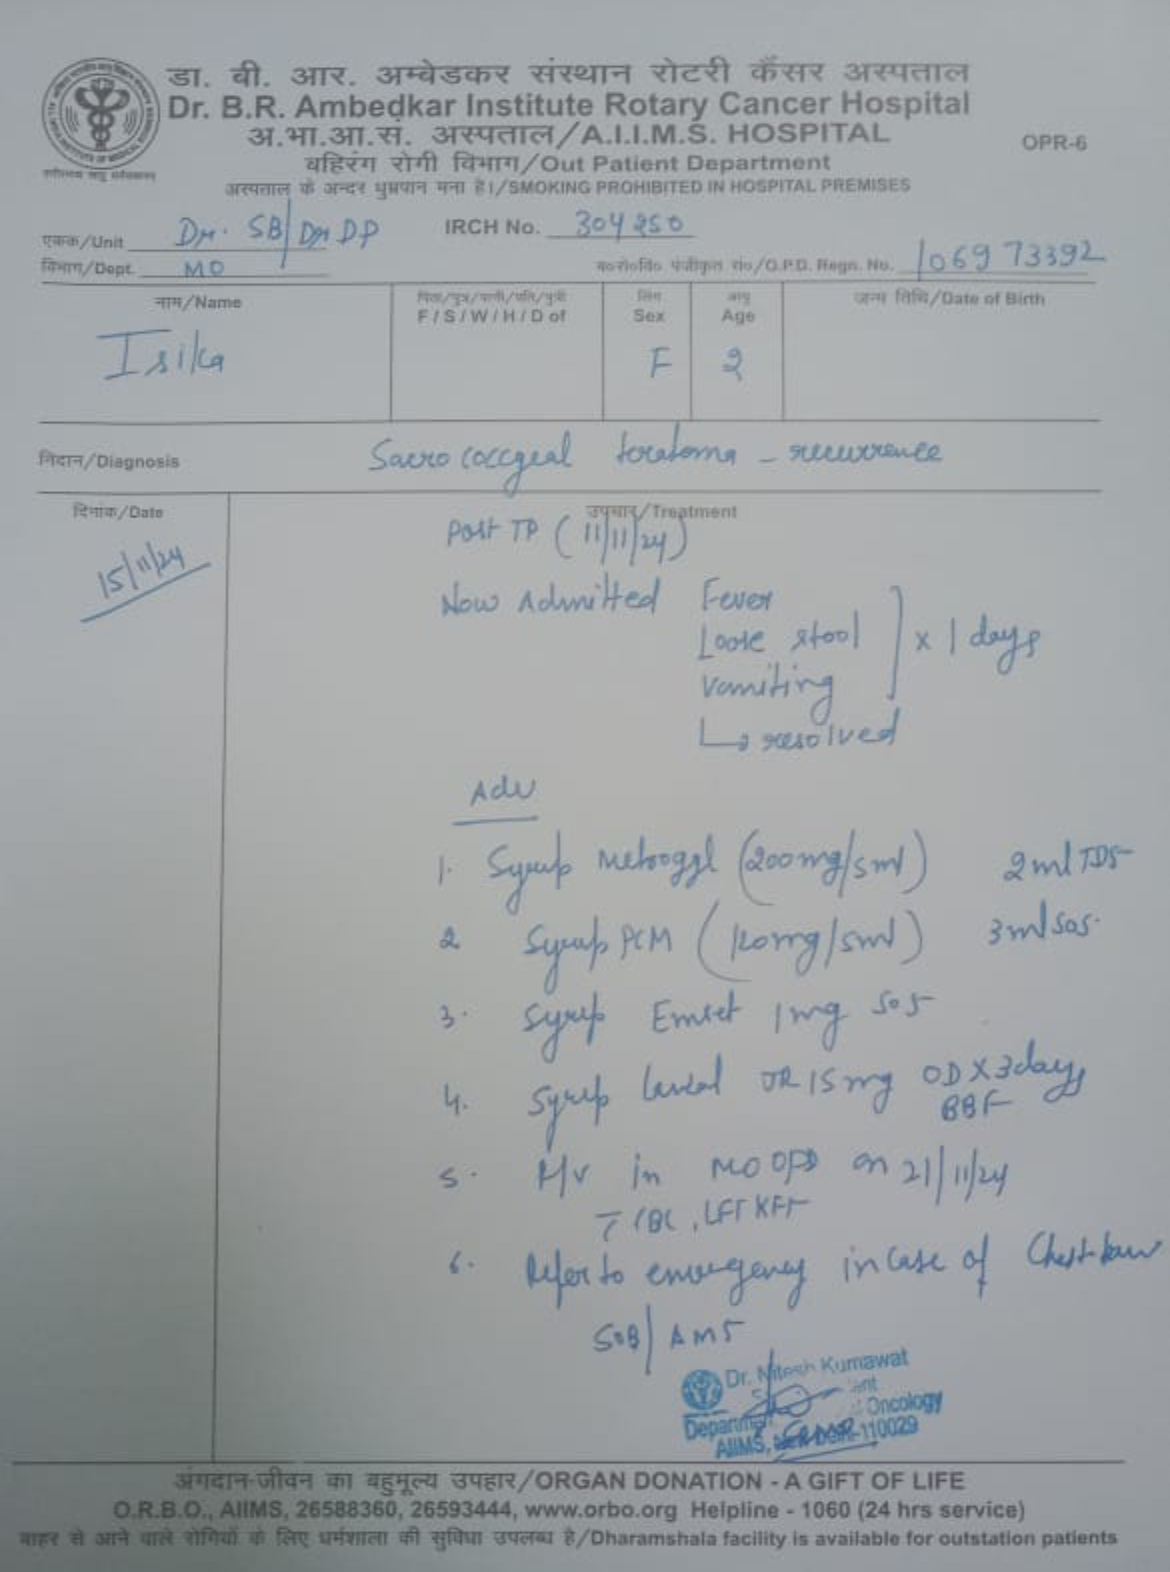 डा. बी. आर. अम्बेडकर संस्थान रोटरी कैंसर अस्पताल
Dr. B.R. Ambedkar Institute Rotary Cancer Hospital
अ.भा.आ.सं. अस्पताल/A.I.I.M.S. HOSPITAL
OPR-6
बहिरंग रोगी विभाग/Out Patient Department
अस्पताल के अन्दर धूम्रपान मना है।/SMOKING PROHIBITED IN HOSPITAL PREMISES
एकक/Unit Dr. SB/Dr DP IRCH No. 304250
विभाग/Dept. MO ब०रो०वि० पंजीकृत सं०/O.P.D. Regn. No. 106973392
नाम/Name पिता/पुत्र/पत्नी/पति/पुत्री लिंग आयु जन्म तिथि/Date of Birth
F/S/W/H/D of Sex Age
Isika F 2
निदान/Diagnosis Sacro coccgeal teratoma - recurrence
दिनांक/Date उपचार/Treatment
15/11/24 Post TP (11/11/24)
Now Admitted Fever
Loose stool x 1 days
Vomiting
↳ resolved
Adv
1. Syrup Metrogyl (200mg/5ml) 2ml TDS
2 Syrup PCM (120mg/5ml) 3ml SOS.
3. Syrup Emset 1mg SOS
4. Syrup 15mg OD X 3days
BBF
5. R/v in MO OPD on 21/11/24
CBC, LFT KFT
6. Refer to emergency in case of
SOB/AMS
Dr. Nitesh Kumawat
Oncology
AIIMS, New Delhi-110029
अंगदान-जीवन का बहुमूल्य उपहार/ORGAN DONATION - A GIFT OF LIFE
O.R.B.O., AIIMS, 26588360, 26593444, www.orbo.org Helpline - 1060 (24 hrs service)
बाहर से आने वाले रोगियों के लिए धर्मशाला की सुविधा उपलब्ध है/Dharamshala facility is available for outstation patients